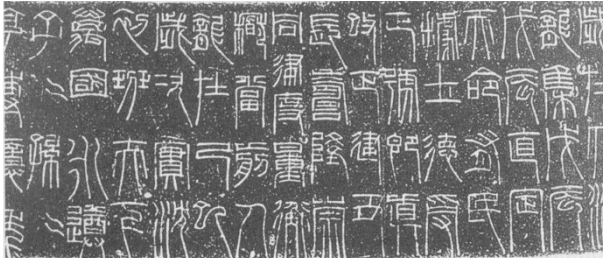 歲在大梁
龍集戊辰
戊辰直定
天命有民
據土德受
正號即真
改正建丑
長壽隆崇
同律度量衡
稽當前人
龍在己巳
歲次實沈
初班天下
萬國永遵
子〻孫〻
亨傳億年